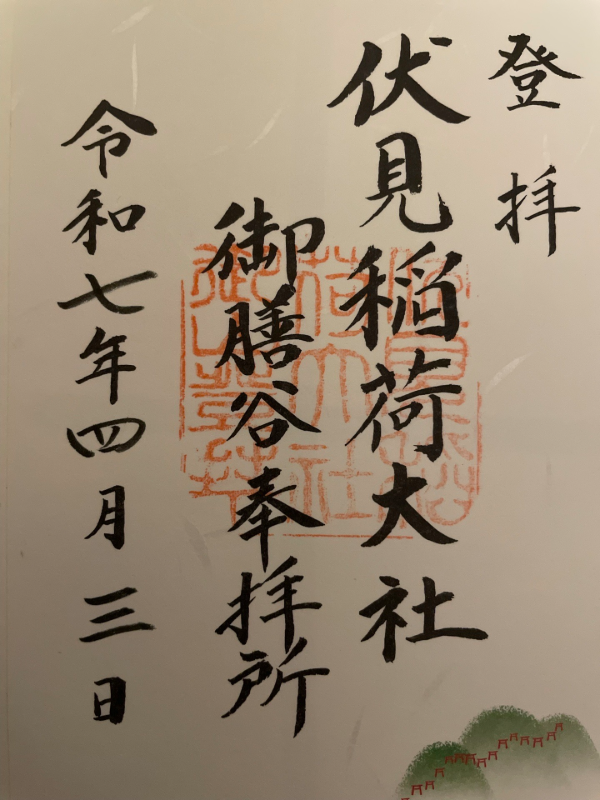 登拝
伏見稲荷大社
御膳谷奉拝所
令和七年四月三日